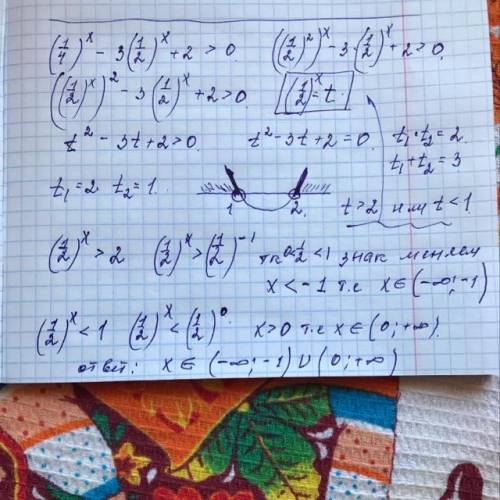 (1/4)^x - 3(1/2)^x + 2 > 0. ((1/2)^2)^x - 3·(1/2)^x + 2 > 0.
((1/2)^x)^2 - 3(1/2)^x + 2 > 0 (1/2)^x = t.
t^2 - 3t + 2 > 0. t^2 - 3t + 2 = 0. t₁·t₂ = 2.
t₁ + t₂ = 3
t₁ = 2 t₂ = 1.
1 2.
t > 2 или t < 1
(1/2)^x > 2 (1/2)^x > (1/2)^-1 тк 0<1/2<1 знак меняем
x < -1 т.е x ∈ (-∞; -1)
(1/2)^x < 1 (1/2)^x < (1/2)^0. x > 0 т.е x ∈ (0; +∞).
ответ: x ∈ (-∞; -1) ∪ (0; +∞)